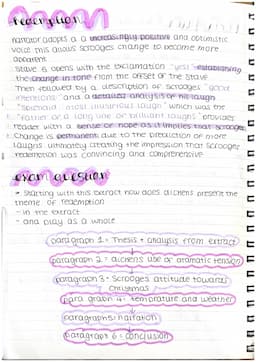 redemption
narrator adopts a a increasingly positive and optimistic
voice this allows scrooges change to become more
apparent
Stave 5 opens with the exclamation "yes!" establishing
the change in tone from the offset of the stave
Then followed by a description of scrooges "good
intentions" and a detailed analysis of his laugh
"splendid" "most illustrious laugh" which was the
"father of a long line of brilliant laughs" provides
reader with a sense of hope as it implies that scrooges
change is permanent due to the prediction of more
laughs ultimately creating the impression that scrooges
redemption was convincing and comprehensive
exam question
Starting with this extract how does dickens present the
theme of redemption
- in the extract
- and play as a whole
paragraph 1 = Thesis + analysis from extract
paragraph 2 = dickens use of dramatic tension
paragraph 3 = Scrooges attitude toward
christmas
para graph 4: temperature and weather
paragraph 5: narration
paragraph 6 = conclusion